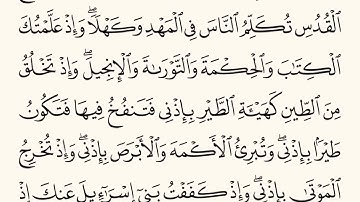 ٱلْقُدُسِ تُكَلِّمُ ٱلنَّاسَ فِى ٱلْمَهْدِ وَكَهْلًا ۖ وَإِذْ عَلَّمْتُكَ
ٱلْكِتَٰبَ وَٱلْحِكْمَةَ وَٱلتَّوْرَىٰةَ وَٱلْإِنجِيلَ ۖ وَإِذْ تَخْلُقُ
مِنَ ٱلطِّينِ كَهَيْـَٔةِ ٱلطَّيْرِ بِإِذْنِى فَتَنفُخُ فِيهَا فَتَكُونُ
طَيْرًۢا بِإِذْنِى ۖ وَتُبْرِئُ ٱلْأَكْمَهَ وَٱلْأَبْرَصَ بِإِذْنِى ۖ وَإِذْ تُخْرِجُ
ٱلْمَوْتَىٰ بِإِذْنِى ۖ وَإِذْ كَفَفْتُ بَنِىٓ إِسْرَٰٓءِيلَ عَنكَ إِذْ